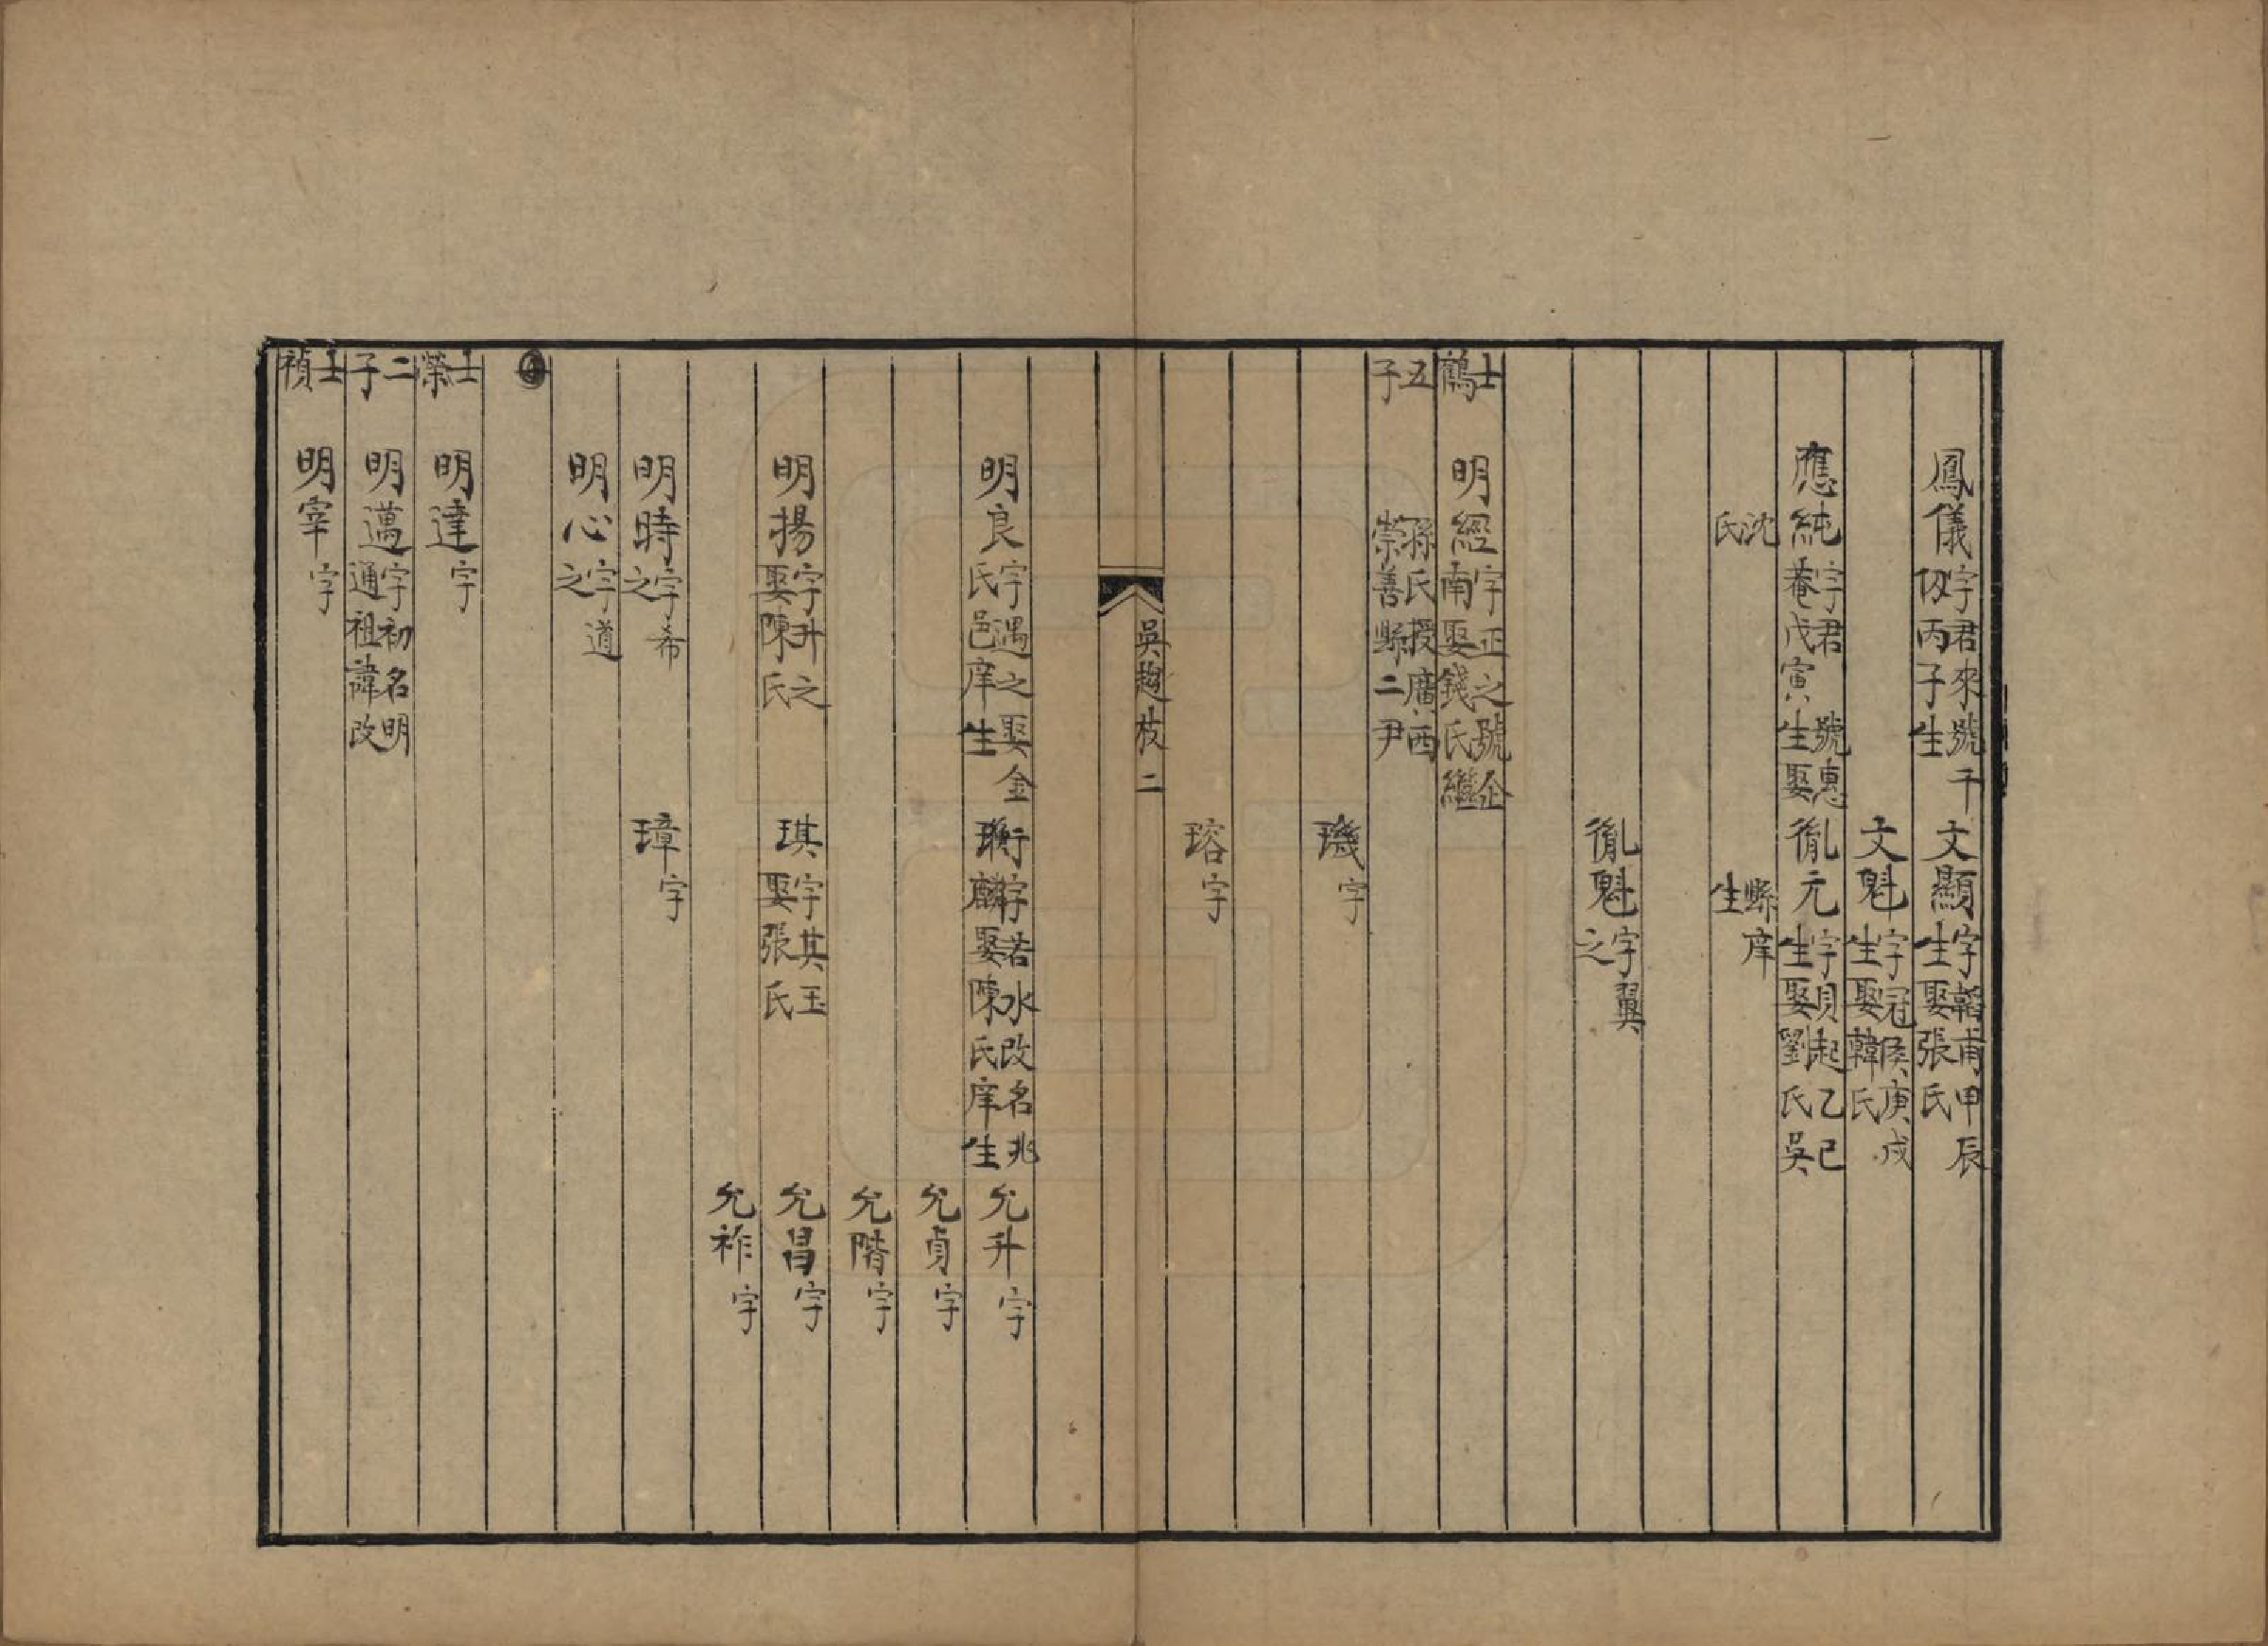 鳳儀字君來號千仭丙子生 文顯字韜甫甲辰生娶張氏
文魁字冠侯庚戌生娶韓氏
應純字君 號惠菴戊寅生娶 胤元字貝起乙巳生娶劉氏吳
沈氏 縣庠生
胤魁字翼之
士鶴 明經字正之號企南娶錢氏繼
五子 孫氏授廣西崇善縣二尹
璣字
瑢字
吳趨枝 二
明良字遇之娶金氏邑庠生 珩字若水改名兆麟娶陳氏庠生 允升字
允貞字
允階字
明揚字升之娶陳氏 琪字其玉娶張氏 允昌字
允祚字
明時字希之 璋字
明心字道之
士榮 明達字
二子 明邁字初名明通祖諱改
士禎 明宰字